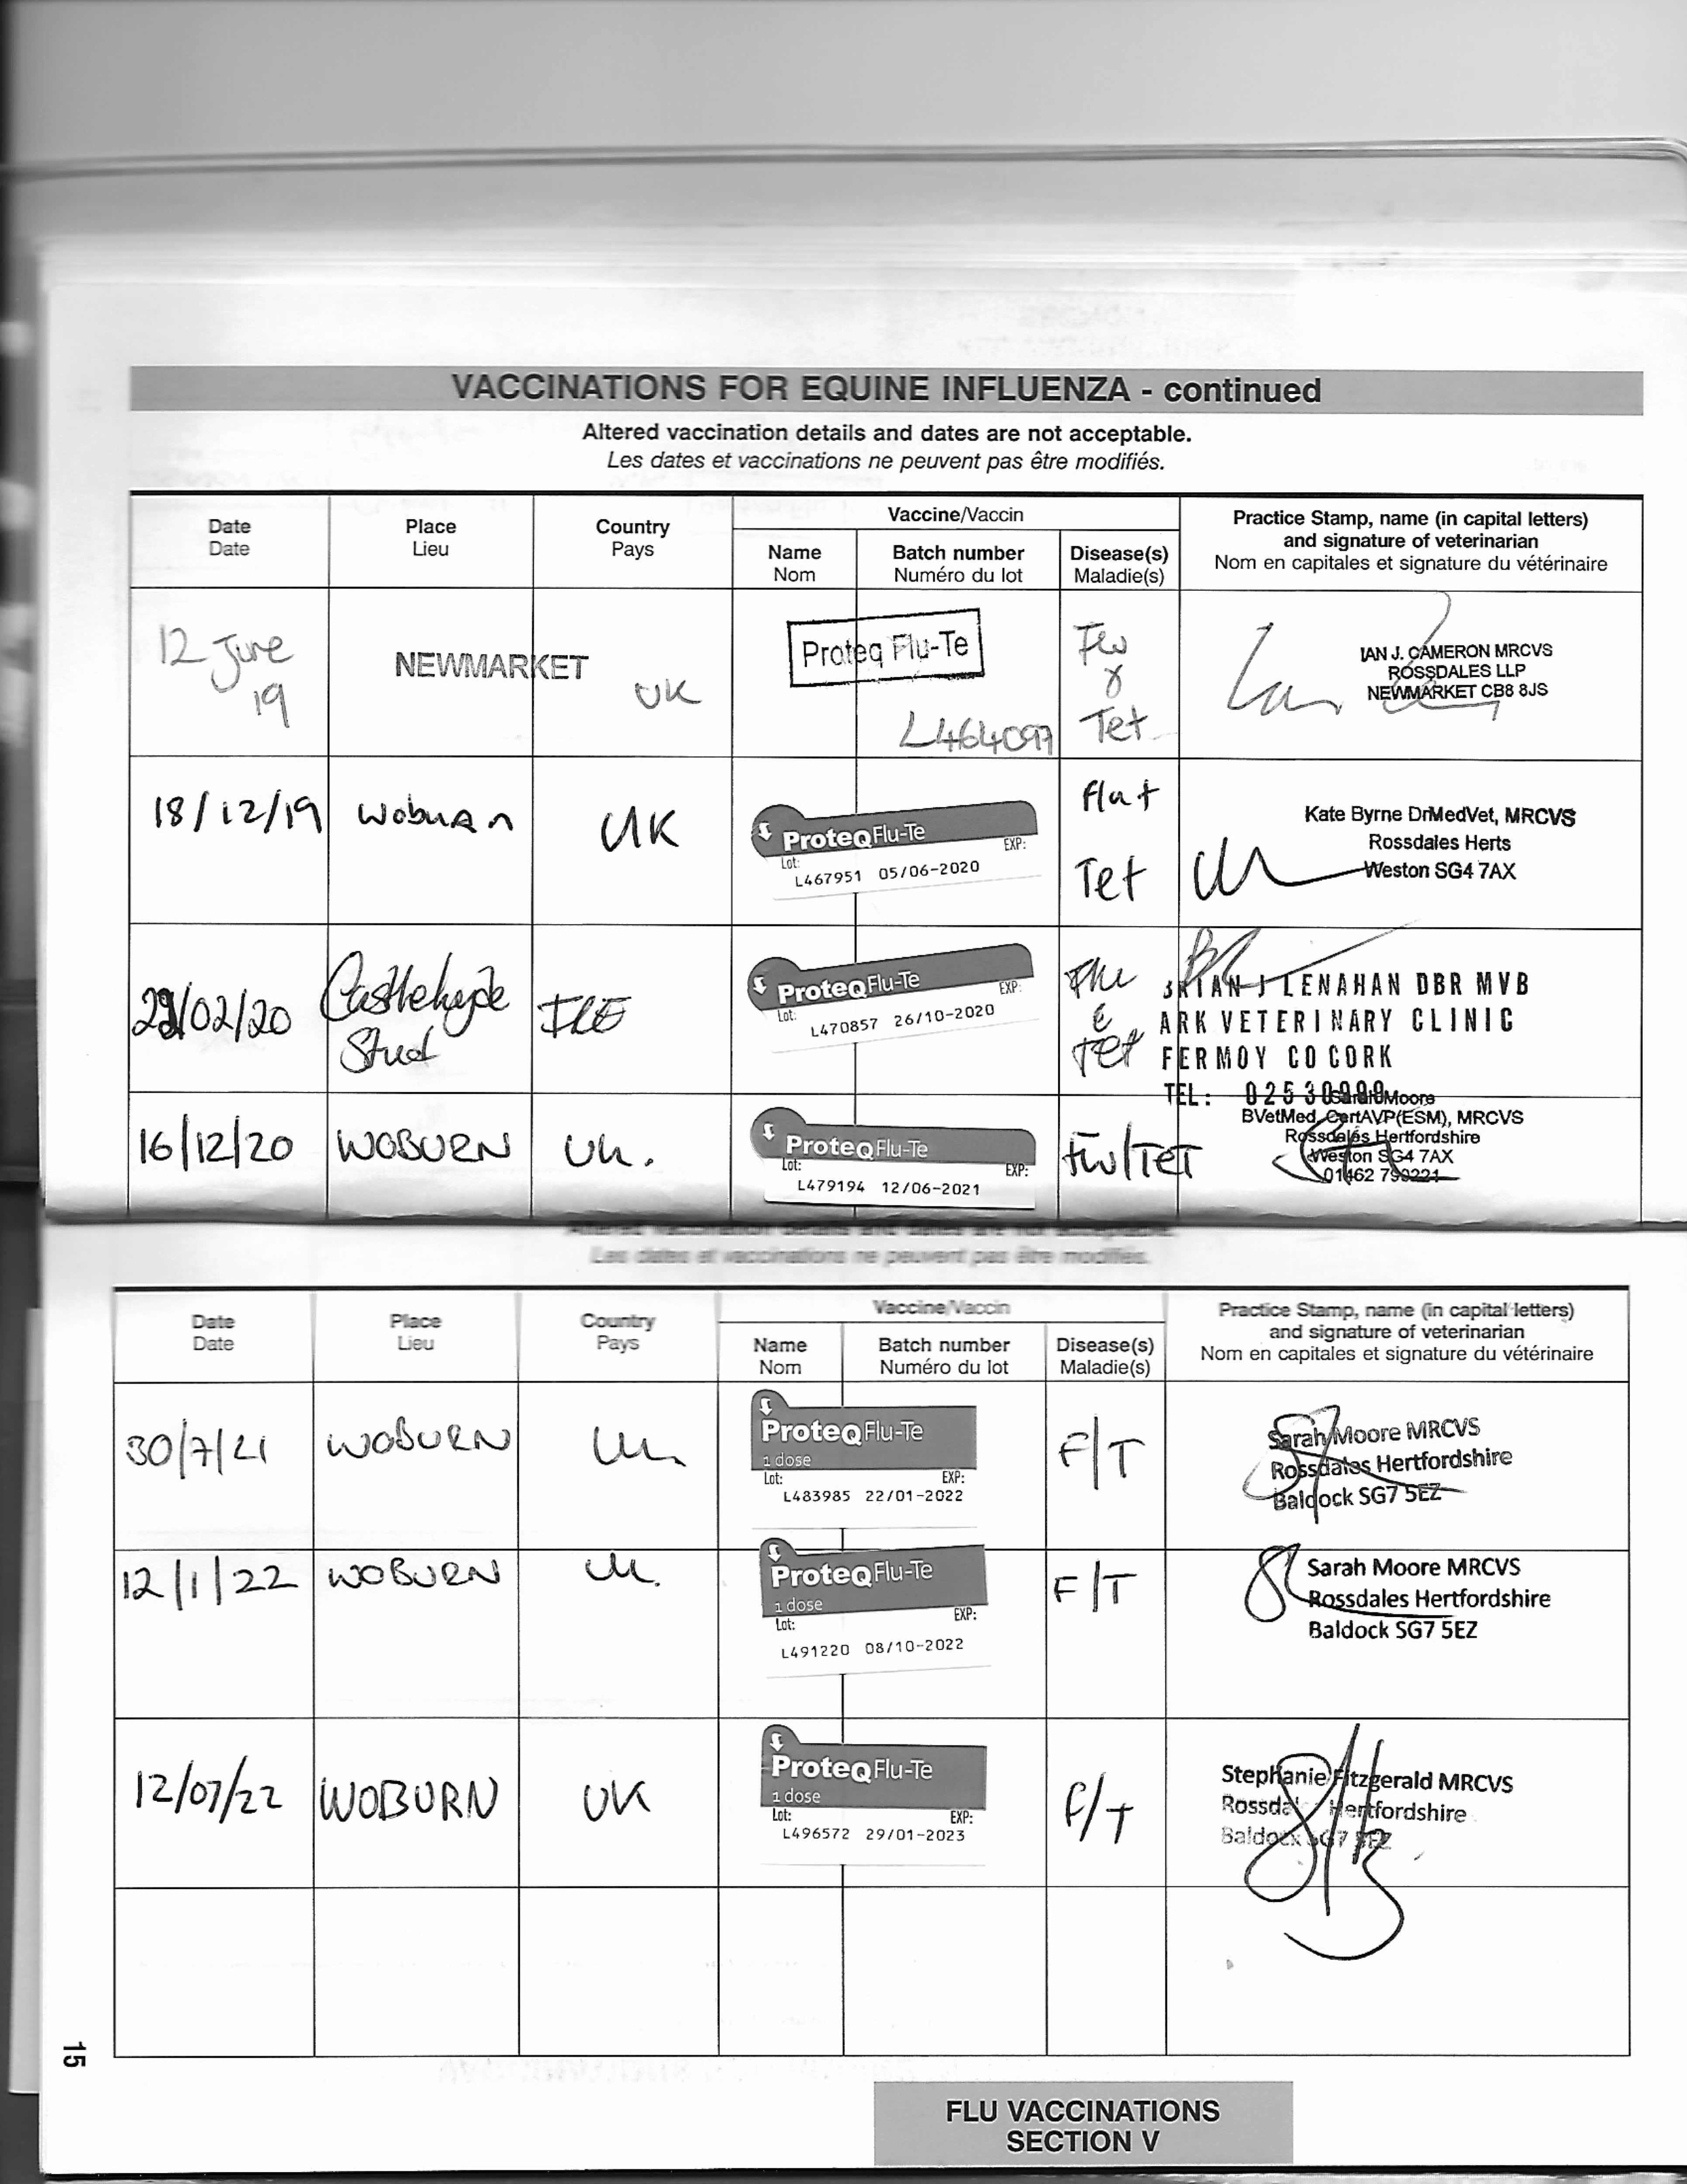 VACCINATIONS FOR EQUINE INFLUENZA - continued
Altered vaccination details and dates are not acceptable.
Les dates et vaccinations ne peuvent pas être modifiés.
Date
Date
Place
Lieu
Country
Pays
Vaccine/Vaccin
Name
Nom
Batch number
Numéro du lot
Disease(s)
Maladie(s)
Practice Stamp, name (in capital letters)
and signature of veterinarian
Nom en capitales et signature du vétérinaire
12 June
19
NEWMARKET
UK
Proteq Flu-Te
Flu
&
Tet
IAN J. CAMERON MRCVS
ROSSDALES LLP
NEWMARKET CB8 8JS
18/12/19
Woburn
UK
ProteqFlu-Te
Lot: EXP:
L467951 05/06-2020
Flu +
Tet
Kate Byrne DrMedVet, MRCVS
Rossdales Herts
Weston SG4 7AX
/02/20
Castlehyde
Stud
IRE
ProteqFlu-Te
Lot: EXP:
L470857 26/10-2020
Flu
&
Tet
BRIAN J LENAHAN DBR MVB
ARK VETERINARY CLINIC
FERMOY CO CORK
TEL:
16/12/20
WOBURN
UK.
ProteqFlu-Te
Lot: EXP:
L479194 12/06-2021
Flu/TET
Moore
BVetMed CertAVP(ESM), MRCVS
Rossdales Hertfordshire
Weston SG4 7AX
01462
Altered vaccination details and dates are not acceptable.
Les dates et vaccinations ne peuvent pas être modifiés.
Date
Date
Place
Lieu
Country
Pays
Vaccine/Vaccin
Name
Nom
Batch number
Numéro du lot
Disease(s)
Maladie(s)
Practice Stamp, name (in capital letters)
and signature of veterinarian
Nom en capitales et signature du vétérinaire
30/7/21
WOBURN
UK
ProteqFlu-Te
1 dose
Lot: EXP:
L483985 22/01-2022
F/T
Sarah Moore MRCVS
Rossdales Hertfordshire
Baldock SG7 5EZ
12/1/22
WOBURN
UK.
ProteqFlu-Te
1 dose
Lot: EXP:
L491220 08/10-2022
F/T
Sarah Moore MRCVS
Rossdales Hertfordshire
Baldock SG7 5EZ
12/07/22
WOBURN
UK
ProteqFlu-Te
1 dose
Lot: EXP:
L496572 29/01-2023
F/T
Stephanie Fitzgerald MRCVS
Rossdales Hertfordshire
Baldock SG7 5EZ
15
FLU VACCINATIONS
SECTION V